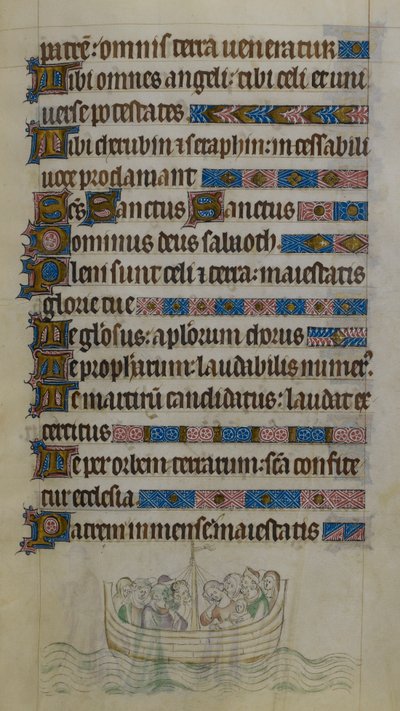 patrē: omnis terra ueneratur
Tibi omnes angeli: tibi celi et uni
uerse potestates
Tibi cherubin ⁊ seraphin: incessabili
uoce proclamant
Sc̄s Sanctus Sanctus
Dominus deus sabaoth.
Pleni sunt celi ⁊ terra: maiestatis
glorie tue
Te gl̄osus: apl̄orum chorus
Te prophetarum: laudabilis numer᷒.
Te martirū candidatus: laudat ex
ercitus
Te per orbem terrarum: sc̄a confite
tur ecclesia.
Patrem immense: maiestatis